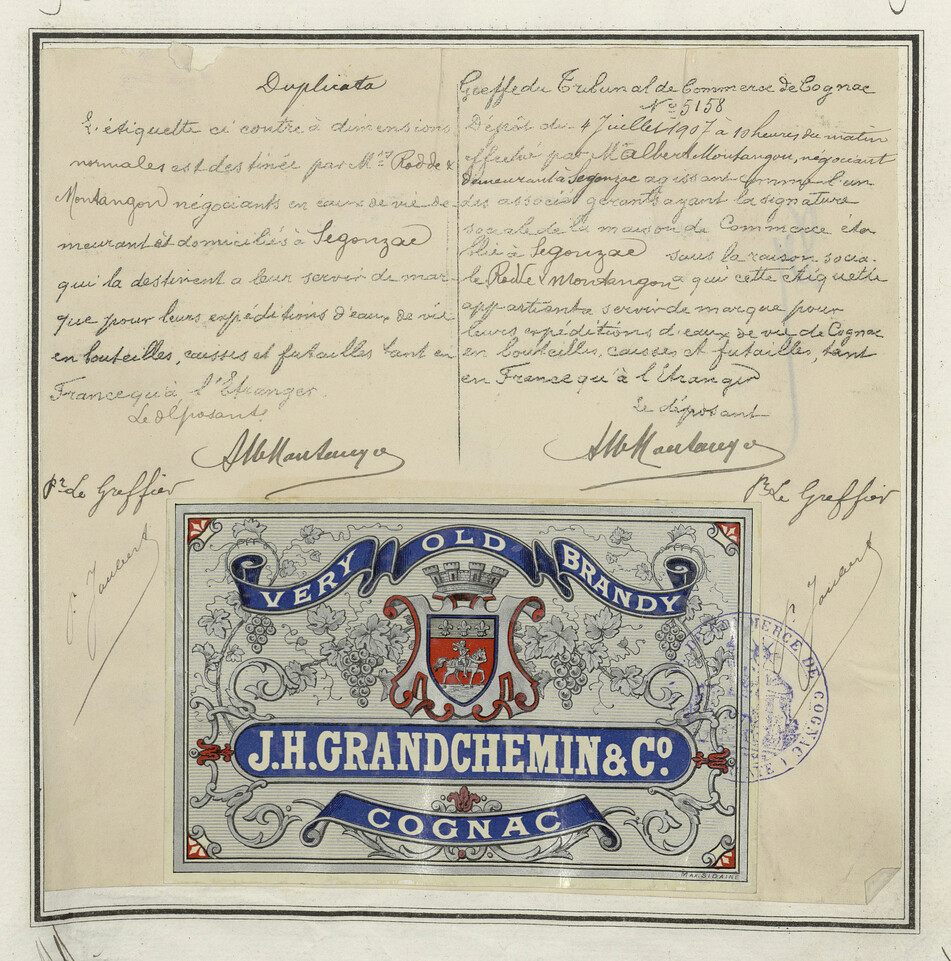 Duplicata
L'étiquette ci contre à dimensions
normales est destinée par Mrs Rodde &
Montangon négociants en eaux de vie de-
meurant et domiciliés à Segonzac
qui la destinent a leur servir de mar-
que pour leurs expéditions d'eaux de vie
en bouteilles, caisses et futailles tant en
France qu'à l'Etranger.
Le déposant
Pr Le Greffier
Greffe du Tribunal de Commerce de Cognac
No 5158
Dépôt du 4 Juillet 1907 à 10 heures du matin
effectué par M Albert Montangon, négociant
demeurant à Segonzac agissant comme l'un
des associé gérants ayant la signature
sociale de la maison de Commerce éta
blie à Segonzac sous la raison socia-
le Rodde & Montangon à qui cette étiquette
appartient a servir de marque pour
leurs expéditions d'eaux de vie de Cognac
en bouteilles, caisses et futailles, tant
en France qu'à l'Etranger
Le déposant
Pr Le Greffier
VERY OLD BRANDY
J.H.GRANDCHEMIN & Co.
COGNAC
COMMERCE DE COGNAC